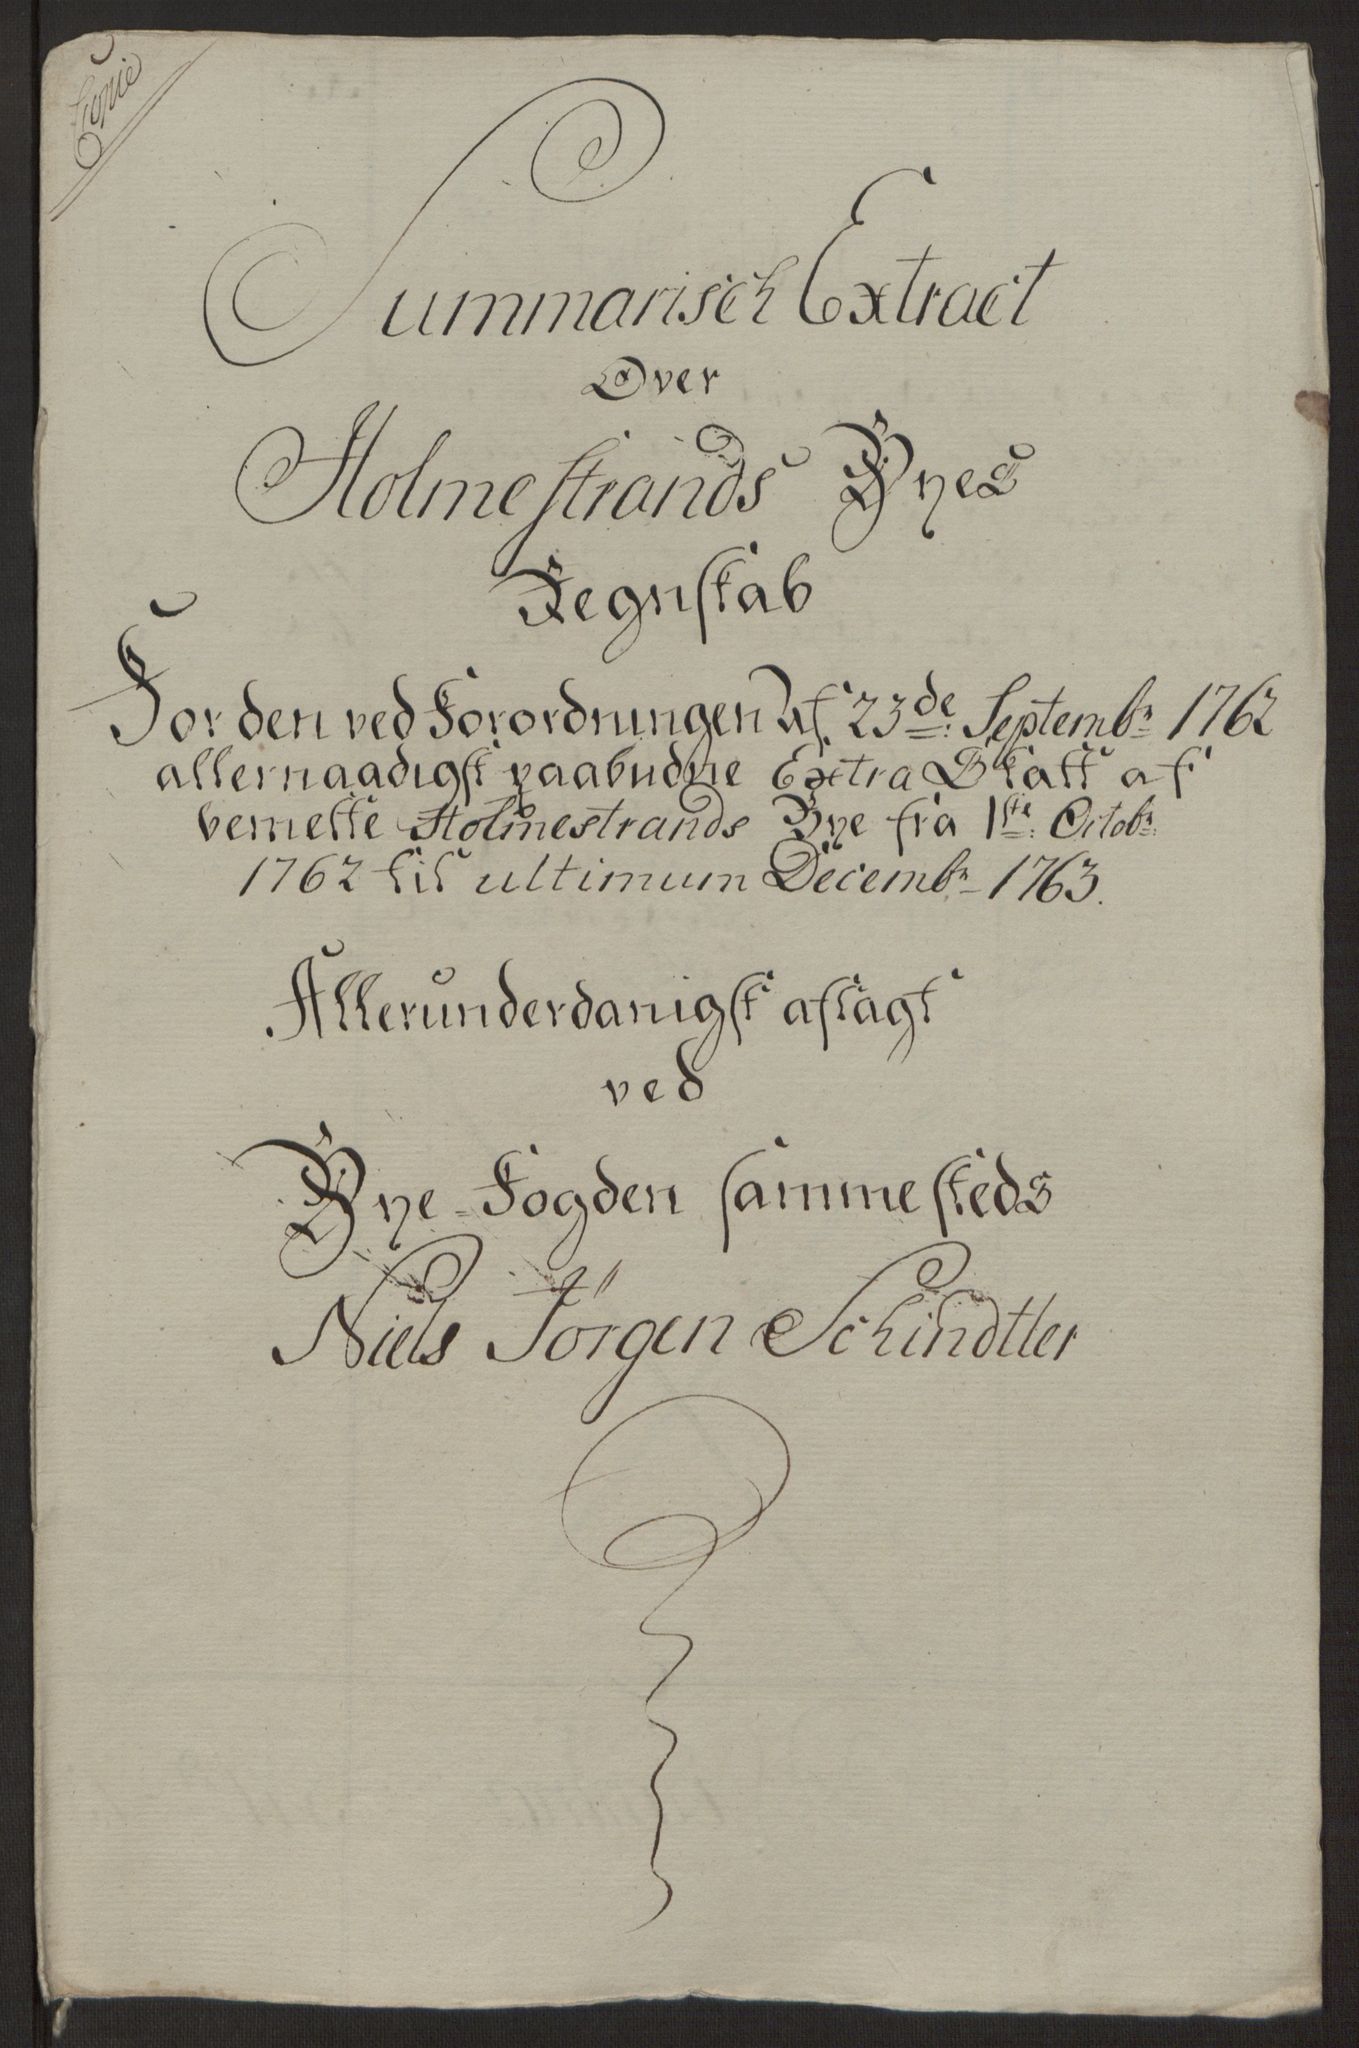 Copie
Summarisch Extract
Over
Holmestrands Byes
Regnskab
For den ved Forordningen af 23de Septembr 1762
allernaadigst paabudne Extra Skatt af
bemelte Holmestrands Bye fra 1ste Octobr:
1762 til ultimum Decembr 1763.
Allerunderdanigst aflagt
ved
Bye-Fogden sammesteds
Niels Jörgen Schindtler